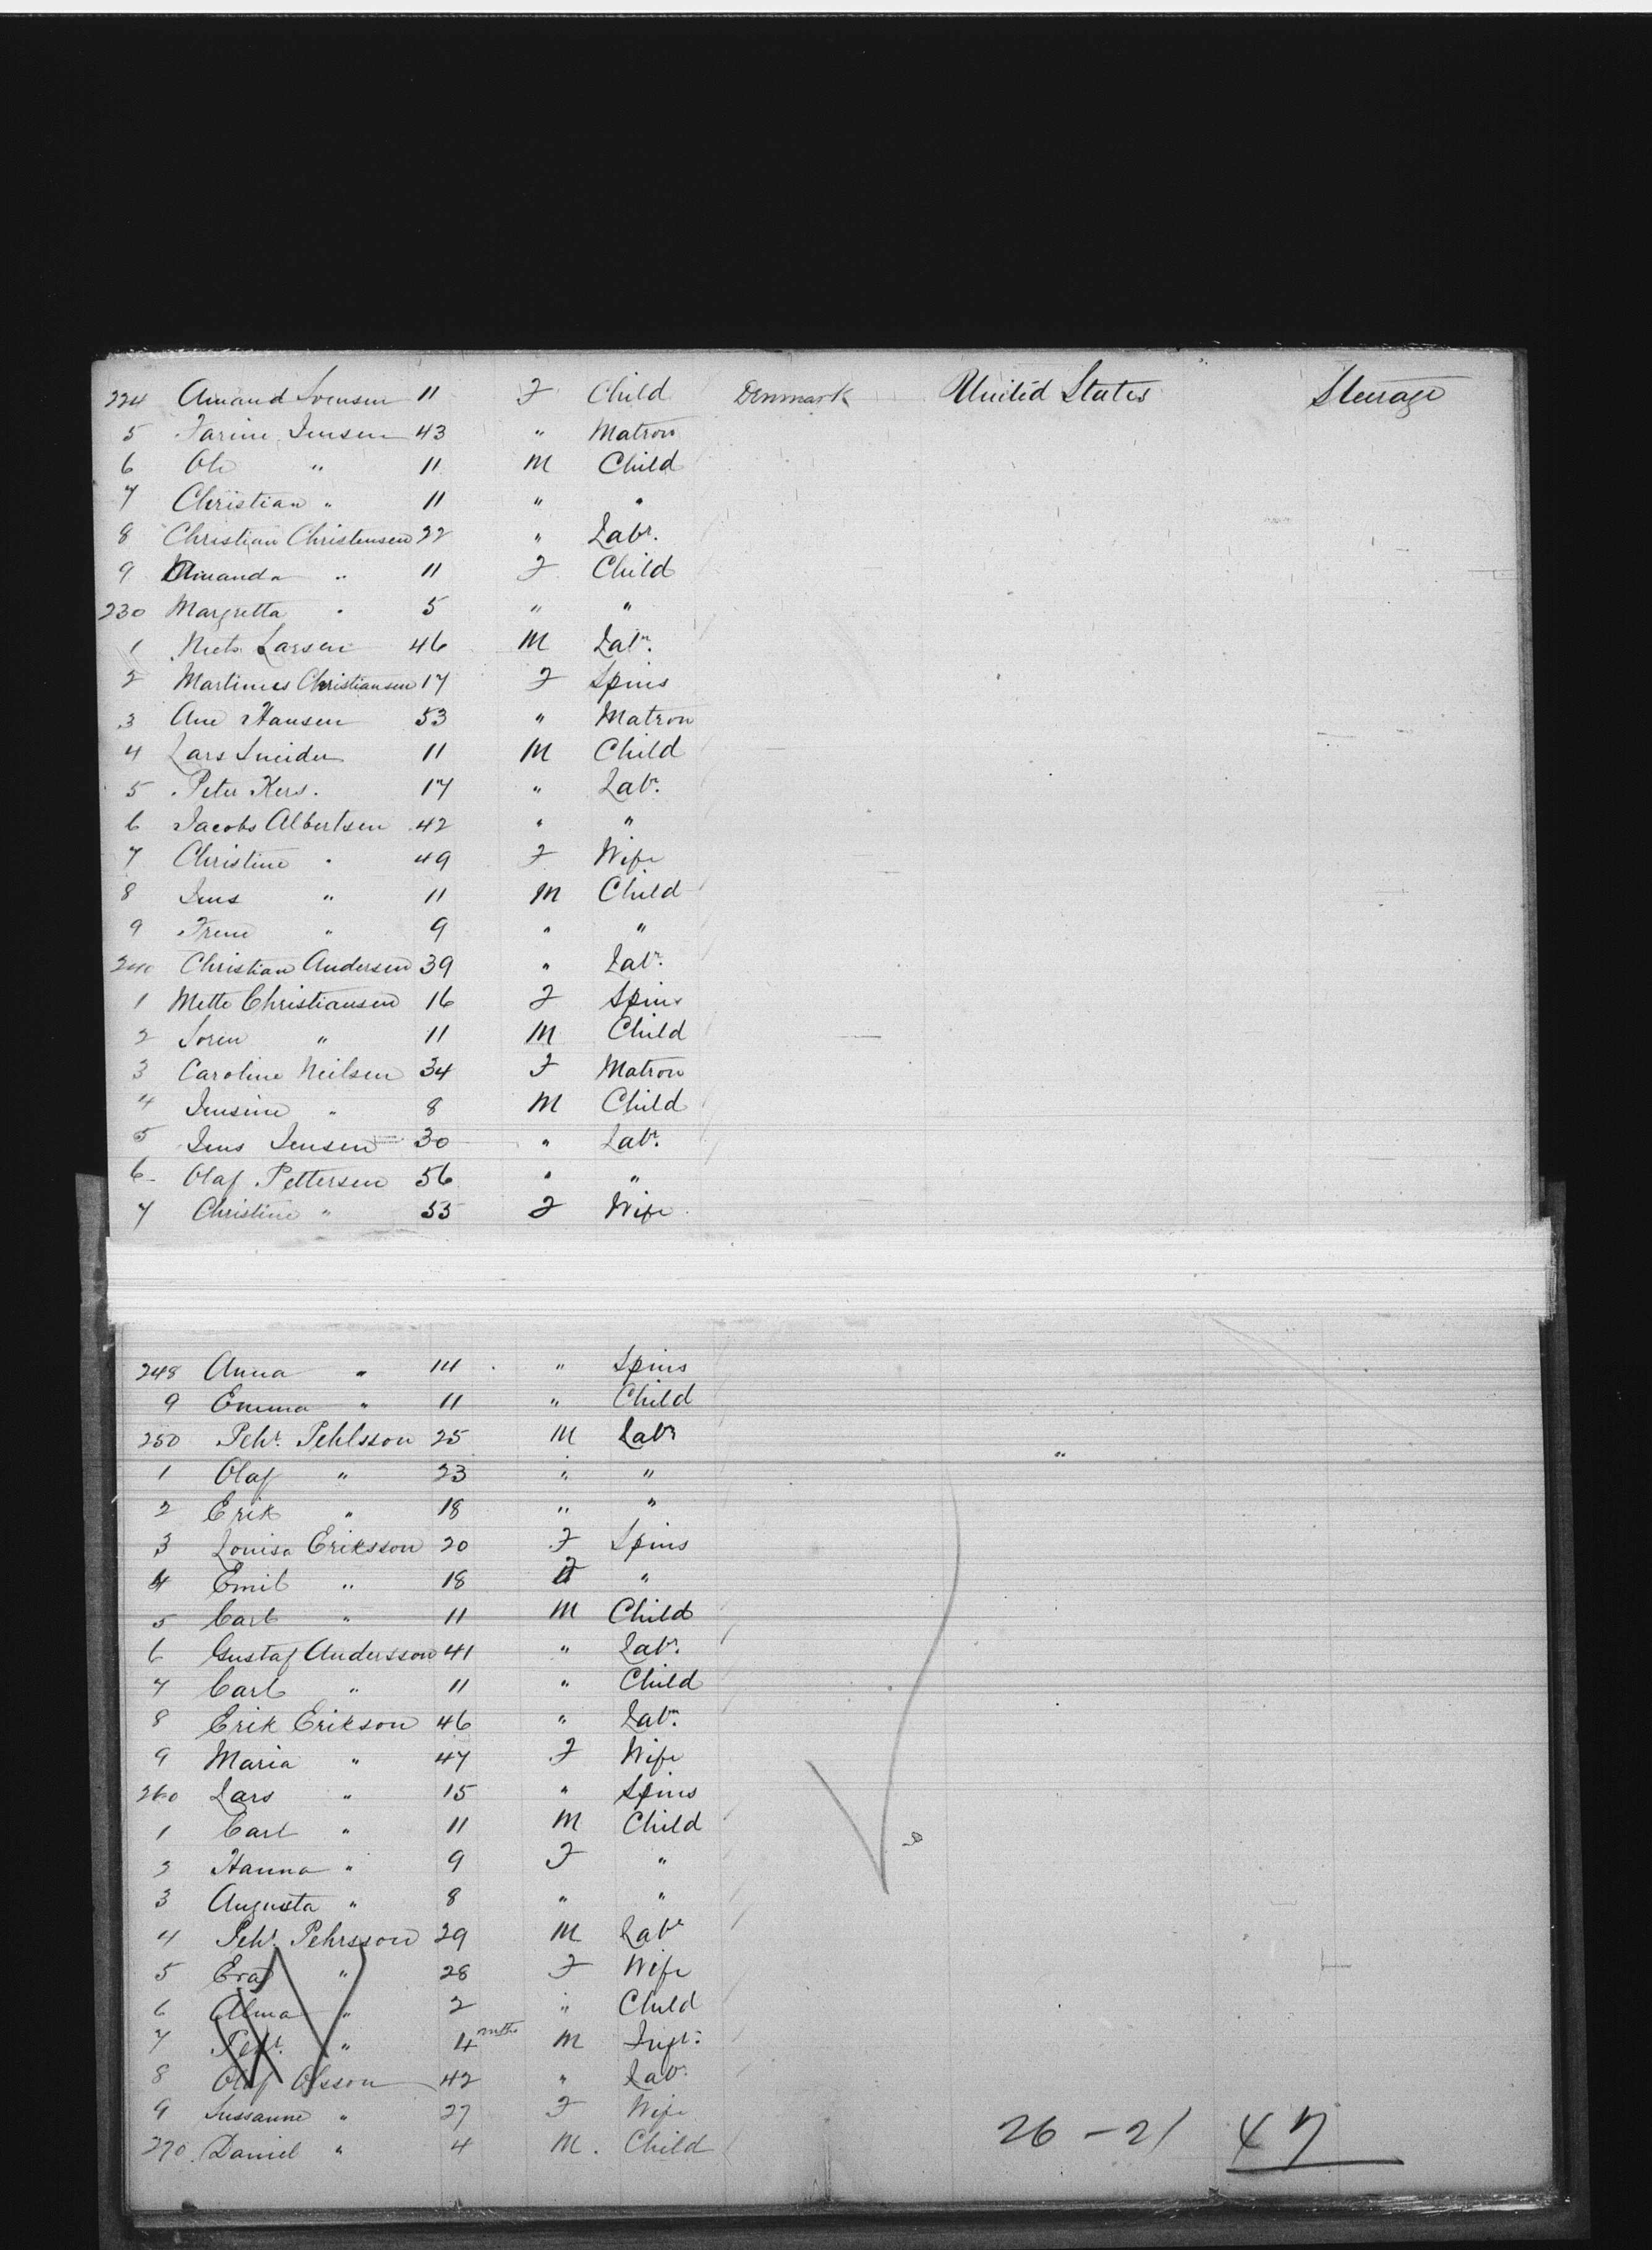 224 Amand Svensen 11 F Child Denmark United States Steerage
5 Farine Jensen 43 " Matron
6 Ole " 11 M Child
7 Christian " 11 " "
8 Christian Christensen 22 " Labr.
9 Amanda " 11 F Child
230 Margretta " 5 " "
1 Niels Larsen 46 M Labr.
2 Martinus Christiansen 17 F Spins
3 Ane Hansen 53 " Matron
4 Lars Sneider 11 M Child
5 Peter Kers. 17 " Labr.
6 Jacobs Albertsen 42 " "
7 Christine " 49 F Wife
8 Jens " 11 M Child
9 Frene " 9 " "
240 Christian Andersen 39 " Labr.
1 Mette Christiansen 16 F Spins
2 Soren " 11 M Child
3 Caroline Neilsen 34 F Matron
4 Jensine " 8 M Child
5 Jens Jensen 30 " Labr.
6 Olaf Pettersen 56 " "
7 Christine " 53 F Wife
248 Anna " 14 " Spins
9 Emma " 11 " Child
250 Pehr. Pehlsson 25 M Labr
1 Olaf " 23 " "
2 Erik " 18 " "
3 Louisa Eriksson 20 F Spins
4 Emil " 18 F "
5 Carl " 11 M Child
6 Gustaf Andersson 41 " Labr.
7 Carl " 11 " Child
8 Erik Erikson 46 " Labr.
9 Maria " 47 F Wife
260 Lars " 15 " Spins
1 Carl " 11 M Child
2 Hanna " 9 F "
3 Augusta " 8 " "
4 Pehr. Pehrsson 29 M Labr
5 Eva " 28 F Wife
6 Alma " 2 " Child
7 Pehr. " 4 mths M Inft.
8 Olaf Olsson 42 " Labr.
9 Sussanne " 27 F Wife
270 Daniel " 4 M. Child
26 - 21 47